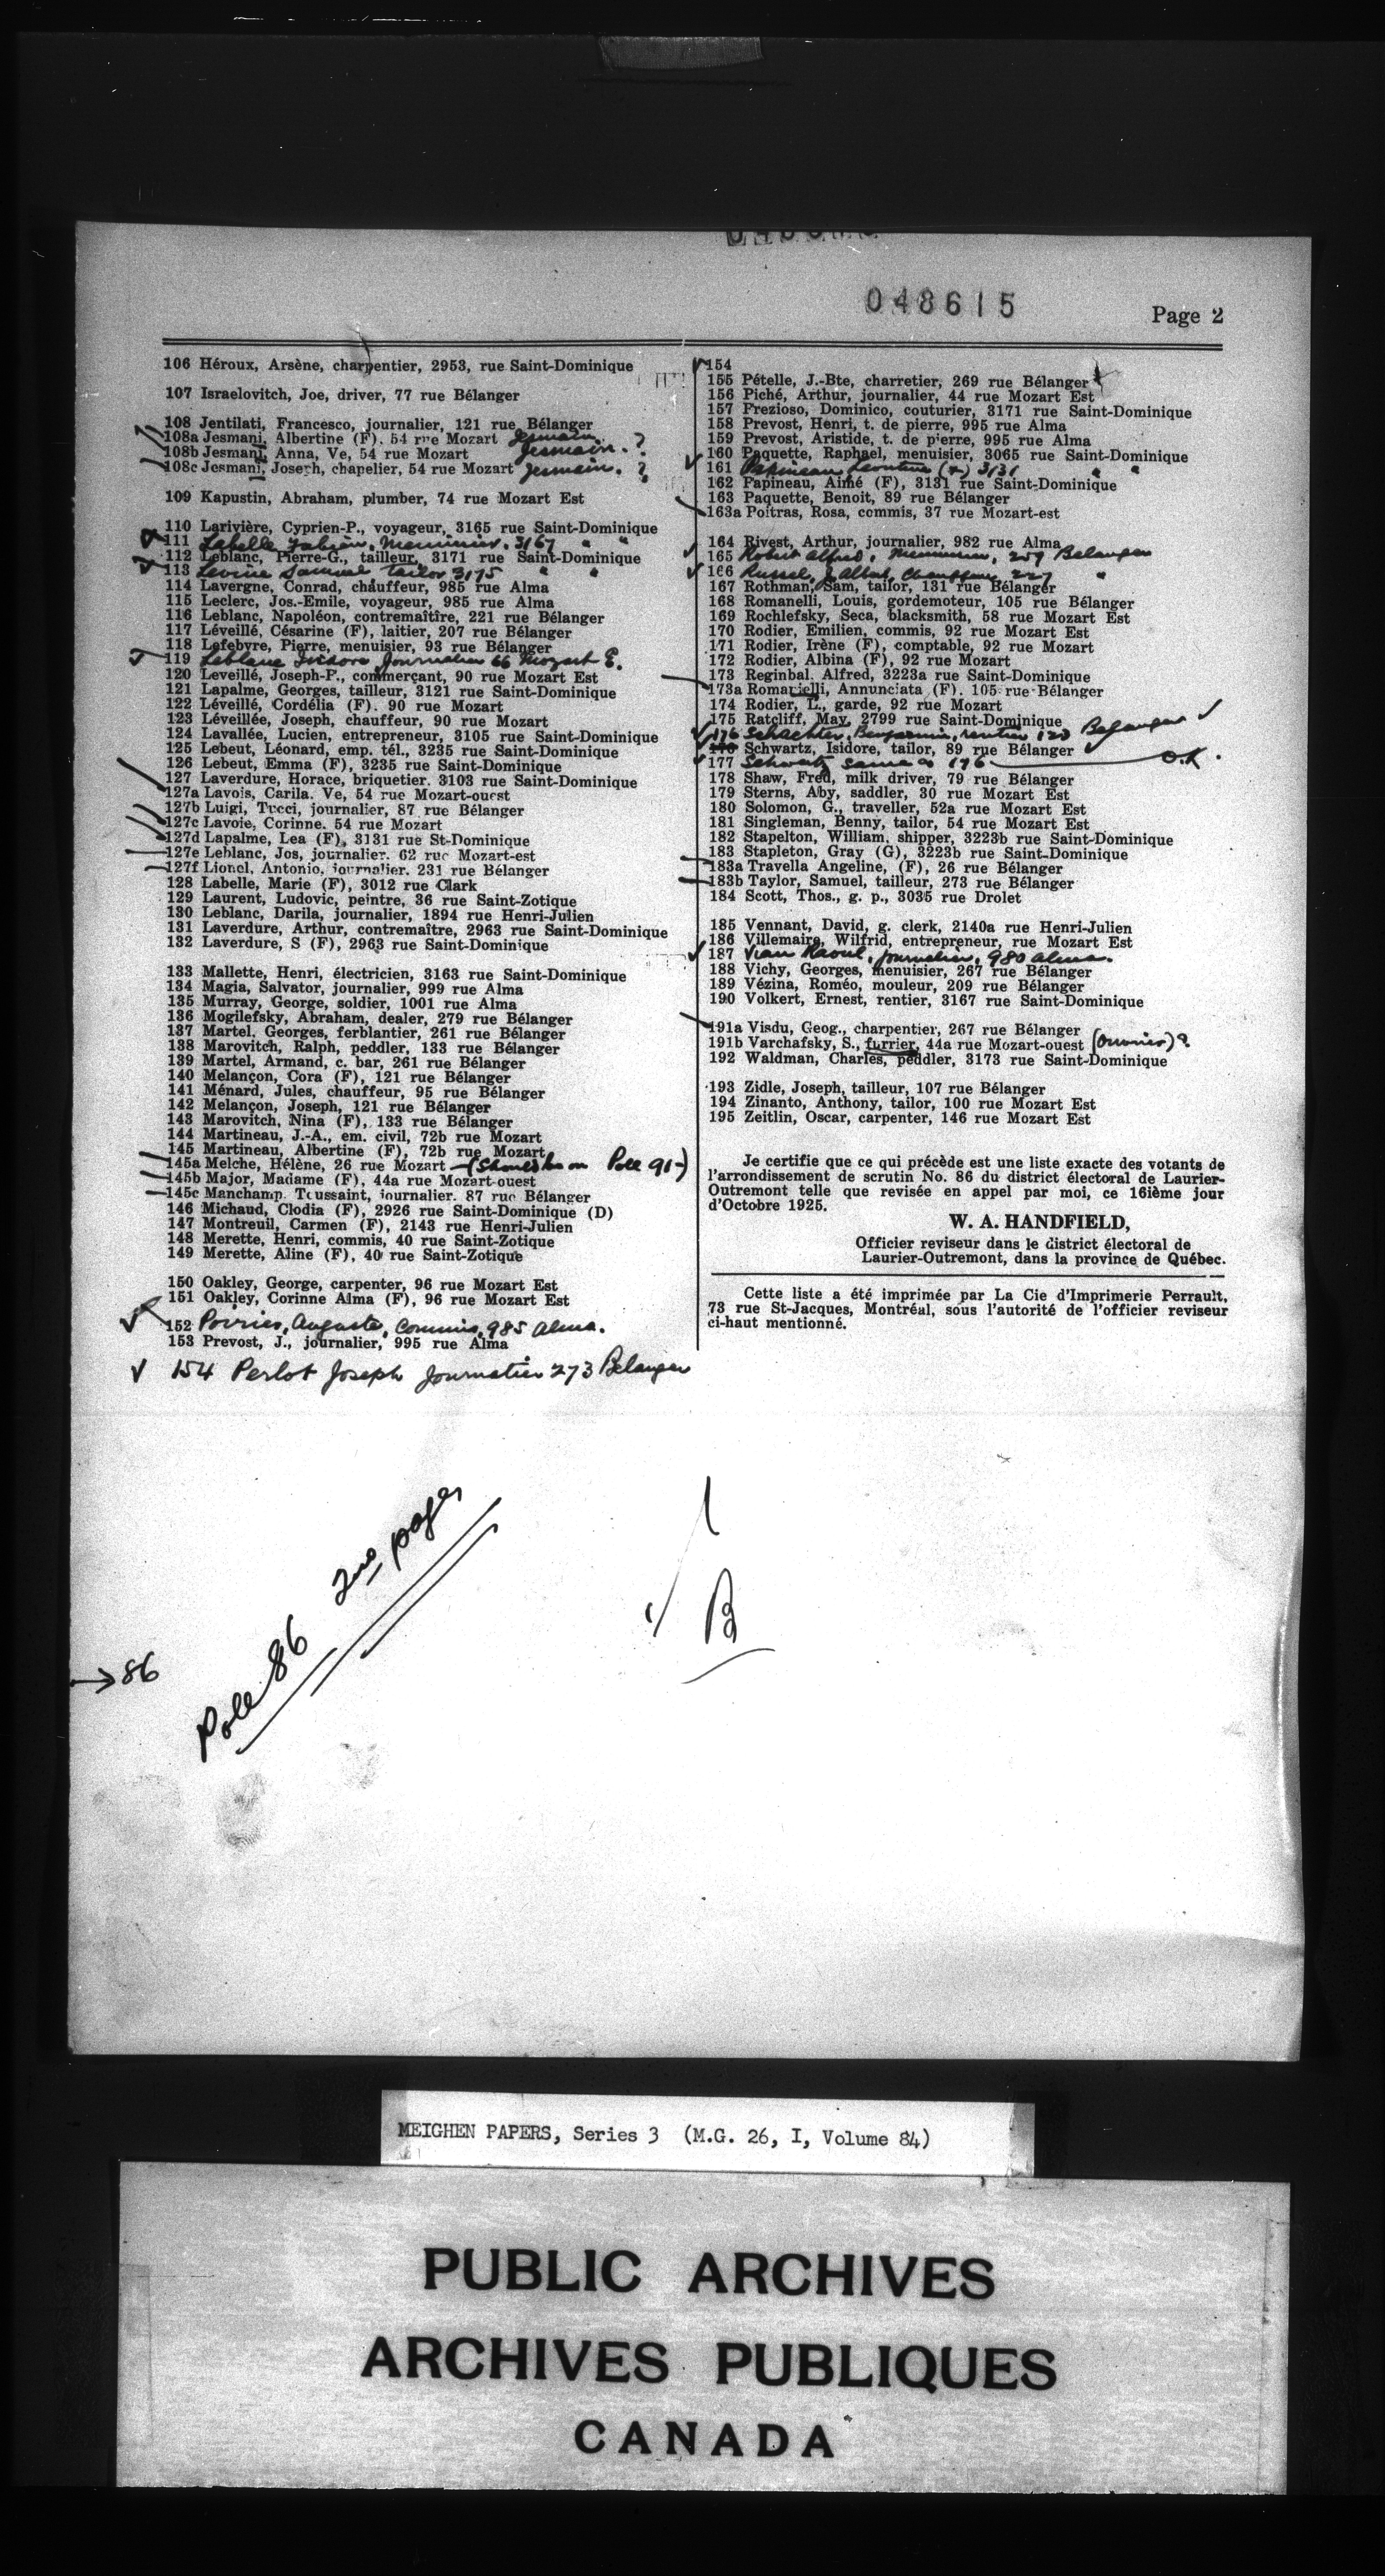 048615
Page 2
106 Héroux, Arsène, charpentier, 2953, rue Saint-Dominique
107 Israelovitch, Joe, driver, 77 rue Bélanger
108 Jentilati, Francesco, journalier, 121 rue Bélanger
108a Jesmani, Albertine (F). 54 rue Mozart Jesmain. ?
108b Jesmani, Anna, Ve, 54 rue Mozart Jesmain. ?
108c Jesmani, Joseph, chapelier, 54 rue Mozart Jesmain. ?
109 Kapustin, Abraham, plumber, 74 rue Mozart Est
110 Larivière, Cyprien-P., voyageur, 3165 rue Saint-Dominique
111 Labelle Fabien, Menuisier, 3167 " "
112 Leblanc, Pierre-G., tailleur, 3171 rue Saint-Dominique
113 Levine Samuel tailor 3175 " "
114 Lavergne, Conrad, chauffeur, 985 rue Alma
115 Leclerc, Jos.-Emile, voyageur, 985 rue Alma
116 Leblanc, Napoléon, contremaîtîre, 221 rue Bélanger
117 Léveillé, Césarine (F), laitier, 207 rue Bélanger
118 Lefebvre, Pierre, menuisier, 93 rue Bélanger
119 Leblanc Isidore Journalier 66 Mozart E.
120 Leveillé, Joseph-P., commerçant, 90 rue Mozart Est
121 Lapalme, Georges, tailleur, 3121 rue Saint-Dominique
122 Léveillé, Cordélia (F). 90 rue Mozart
123 Léveillée, Joseph, chauffeur, 90 rue Mozart
124 Lavallée, Lucien, entrepreneur, 3105 rue Saint-Dominique
125 Lebeut, Léonard, emp. tél., 3235 rue Saint-Dominique
126 Lebeut, Emma (F), 3235 rue Saint-Dominique
127 Laverdure, Horace, briquetier. 3103 rue Saint-Dominique
127a Lavois, Carila. Ve, 54 rue Mozart-ouest
127b Luigi, Tucci, journalier, 87 rue Bélanger
127c Lavoie, Corinne. 54 rue Mozart
127d Lapalme, Lea (F), 3131 rue St-Dominique
127e Leblanc, Jos, journalier. 62 rue Mozart-est
127f Lionel, Antonio, journalier. 231 rue Bélanger
128 Labelle, Marie (F), 3012 rue Clark
129 Laurent, Ludovic, peintre, 36 rue Saint-Zotique
130 Leblanc, Darila, journalier, 1894 rue Henri-Julien
131 Laverdure, Arthur, contremaître, 2963 rue Saint-Dominique
132 Laverdure, S (F), 2963 rue Saint-Dominique
133 Mallette, Henri, électricien, 3163 rue Saint-Dominique
134 Magia, Salvator, journalier, 999 rue Alma
135 Murray, George, soldier, 1001 rue Alma
136 Mogilefsky, Abraham, dealer, 279 rue Bélanger
137 Martel, Georges, ferblantier, 261 rue Bélanger
138 Marovitch, Ralph, peddler, 133 rue Bélanger
139 Martel, Armand, c. bar, 261 rue Bélanger
140 Melançon, Cora (F), 121 rue Bélanger
141 Ménard, Jules, chauffeur, 95 rue Bélanger
142 Melançon, Joseph, 121 rue Bélanger
143 Marovitch, Nina (F), 133 rue Bélanger
144 Martineau, J.-A., em. civil, 72b rue Mozart
145 Martineau, Albertine (F), 72b rue Mozart
145a Melche, Hélène, 26 rue Mozart (Should be on Pole 91-)
145b Major, Madame (F), 44a rue Mozart-ouest
145c Manchamp. Toussaint, journalier. 87 rue Bélanger
146 Michaud, Clodia (F), 2926 rue Saint-Dominique (D)
147 Montreuil, Carmen (F), 2143 rue Henri-Julien
148 Merette, Henri, commis, 40 rue Saint-Zotique
149 Merette, Aline (F), 40 rue Saint-Zotique
150 Oakley, George, carpenter, 96 rue Mozart Est
151 Oakley, Corinne Alma (F), 96 rue Mozart Est
152 Poirier, Auguste, Commis, 985 Alma.
153 Prevost, J., journalier, 995 rue Alma
154 Perlot Joseph Journalier 273 Belanger
154
155 Pételle, J.-Bte, charretier, 269 rue Bélanger
156 Piché, Arthur, journalier, 44 rue Mozart Est
157 Prezioso, Dominico, couturier, 3171 rue Saint-Dominique
158 Prevost, Henri, t. de pierre, 995 rue Alma
159 Prevost, Aristide, t. de pierre, 995 rue Alma
160 Paquette, Raphael, menuisier, 3065 rue Saint-Dominique
161 Papineau 3131 " "
162 Papineau, Aimé (F), 3131 rue Saint-Dominique
163 Paquette, Benoit, 89 rue Bélanger
163a Poitras, Rosa, commis, 37 rue Mozart-est
164 Rivest, Arthur, journalier, 982 rue Alma
165 Robert Alfred, Menuisier, 259 Belanger
166 Russel, J. Albert, Chauffeur 227 "
167 Rothman, Sam, tailor, 131 rue Bélanger
168 Romanelli, Louis, gordemoteur, 105 rue Bélanger
169 Rochlefsky, Seca, blacksmith, 58 rue Mozart Est
170 Rodier, Emilien, commis, 92 rue Mozart Est
171 Rodier, Irène (F), comptable, 92 rue Mozart
172 Rodier, Albina (F), 92 rue Mozart
173 Reginbal. Alfred, 3223a rue Saint-Dominique
173a Romarielli, Annunciata (F). 105 rue Bélanger
174 Rodier, L., garde, 92 rue Mozart
175 Ratcliff, May, 2799 rue Saint-Dominique
176 Schachter, Benjamin, rentier 123 Belanger
176 Schwartz, Isidore, tailor, 89 rue Bélanger
177 Schwartz same as 176 O.K.
178 Shaw, Fred, milk driver, 79 rue Bélanger
179 Sterns, Aby, saddler, 30 rue Mozart Est
180 Solomon, G., traveller, 52a rue Mozart Est
181 Singleman, Benny, tailor, 54 rue Mozart Est
182 Stapelton, William, shipper, 3223b rue Saint-Dominique
183 Stapleton, Gray (G), 3223b rue Saint-Dominique
183a Travella Angeline, (F), 26 rue Bélanger
183b Taylor, Samuel, tailleur, 273 rue Bélanger
184 Scott, Thos., g. p., 3035 rue Drolet
185 Vennant, David, g. clerk, 2140a rue Henri-Julien
186 Villemaire, Wilfrid, entrepreneur, rue Mozart Est
187 Viau Raoul, Journalier, 980 Alma.
188 Vichy, Georges, menuisier, 267 rue Bélanger
189 Vézina, Roméo, mouleur, 209 rue Bélanger
190 Volkert, Ernest, rentier, 3167 rue Saint-Dominique
191a Visdu, Geog., charpentier, 267 rue Bélanger
191b Varchafsky, S., furrier, 44a rue Mozart-ouest (Ouvrier)?
192 Waldman, Charles, peddler, 3173 rue Saint-Dominique
193 Zidle, Joseph, tailleur, 107 rue Bélanger
194 Zinanto, Anthony, tailor, 100 rue Mozart Est
195 Zeitlin, Oscar, carpenter, 146 rue Mozart Est
Je certifie que ce qui précède est une liste exacte des votants de
l'arrondissement de scrutin No. 86 du district électoral de Laurier-
Outremont telle que revisée en appel par moi, ce 16ième jour
d'Octobre 1925.
W. A. HANDFIELD,
Officier reviseur dans le district électoral de
Laurier-Outremont, dans la province de Québec.
Cette liste a été imprimée par La Cie d'Imprimerie Perrault,
73 rue St-Jacques, Montréal, sous l'autorité de l'officier reviseur
ci-haut mentionné.
Pole 86 2nd page
→86
B
MEIGHEN PAPERS, Series 3 (M.G. 26, I, Volume 84)
PUBLIC ARCHIVES
ARCHIVES PUBLIQUES
CANADA